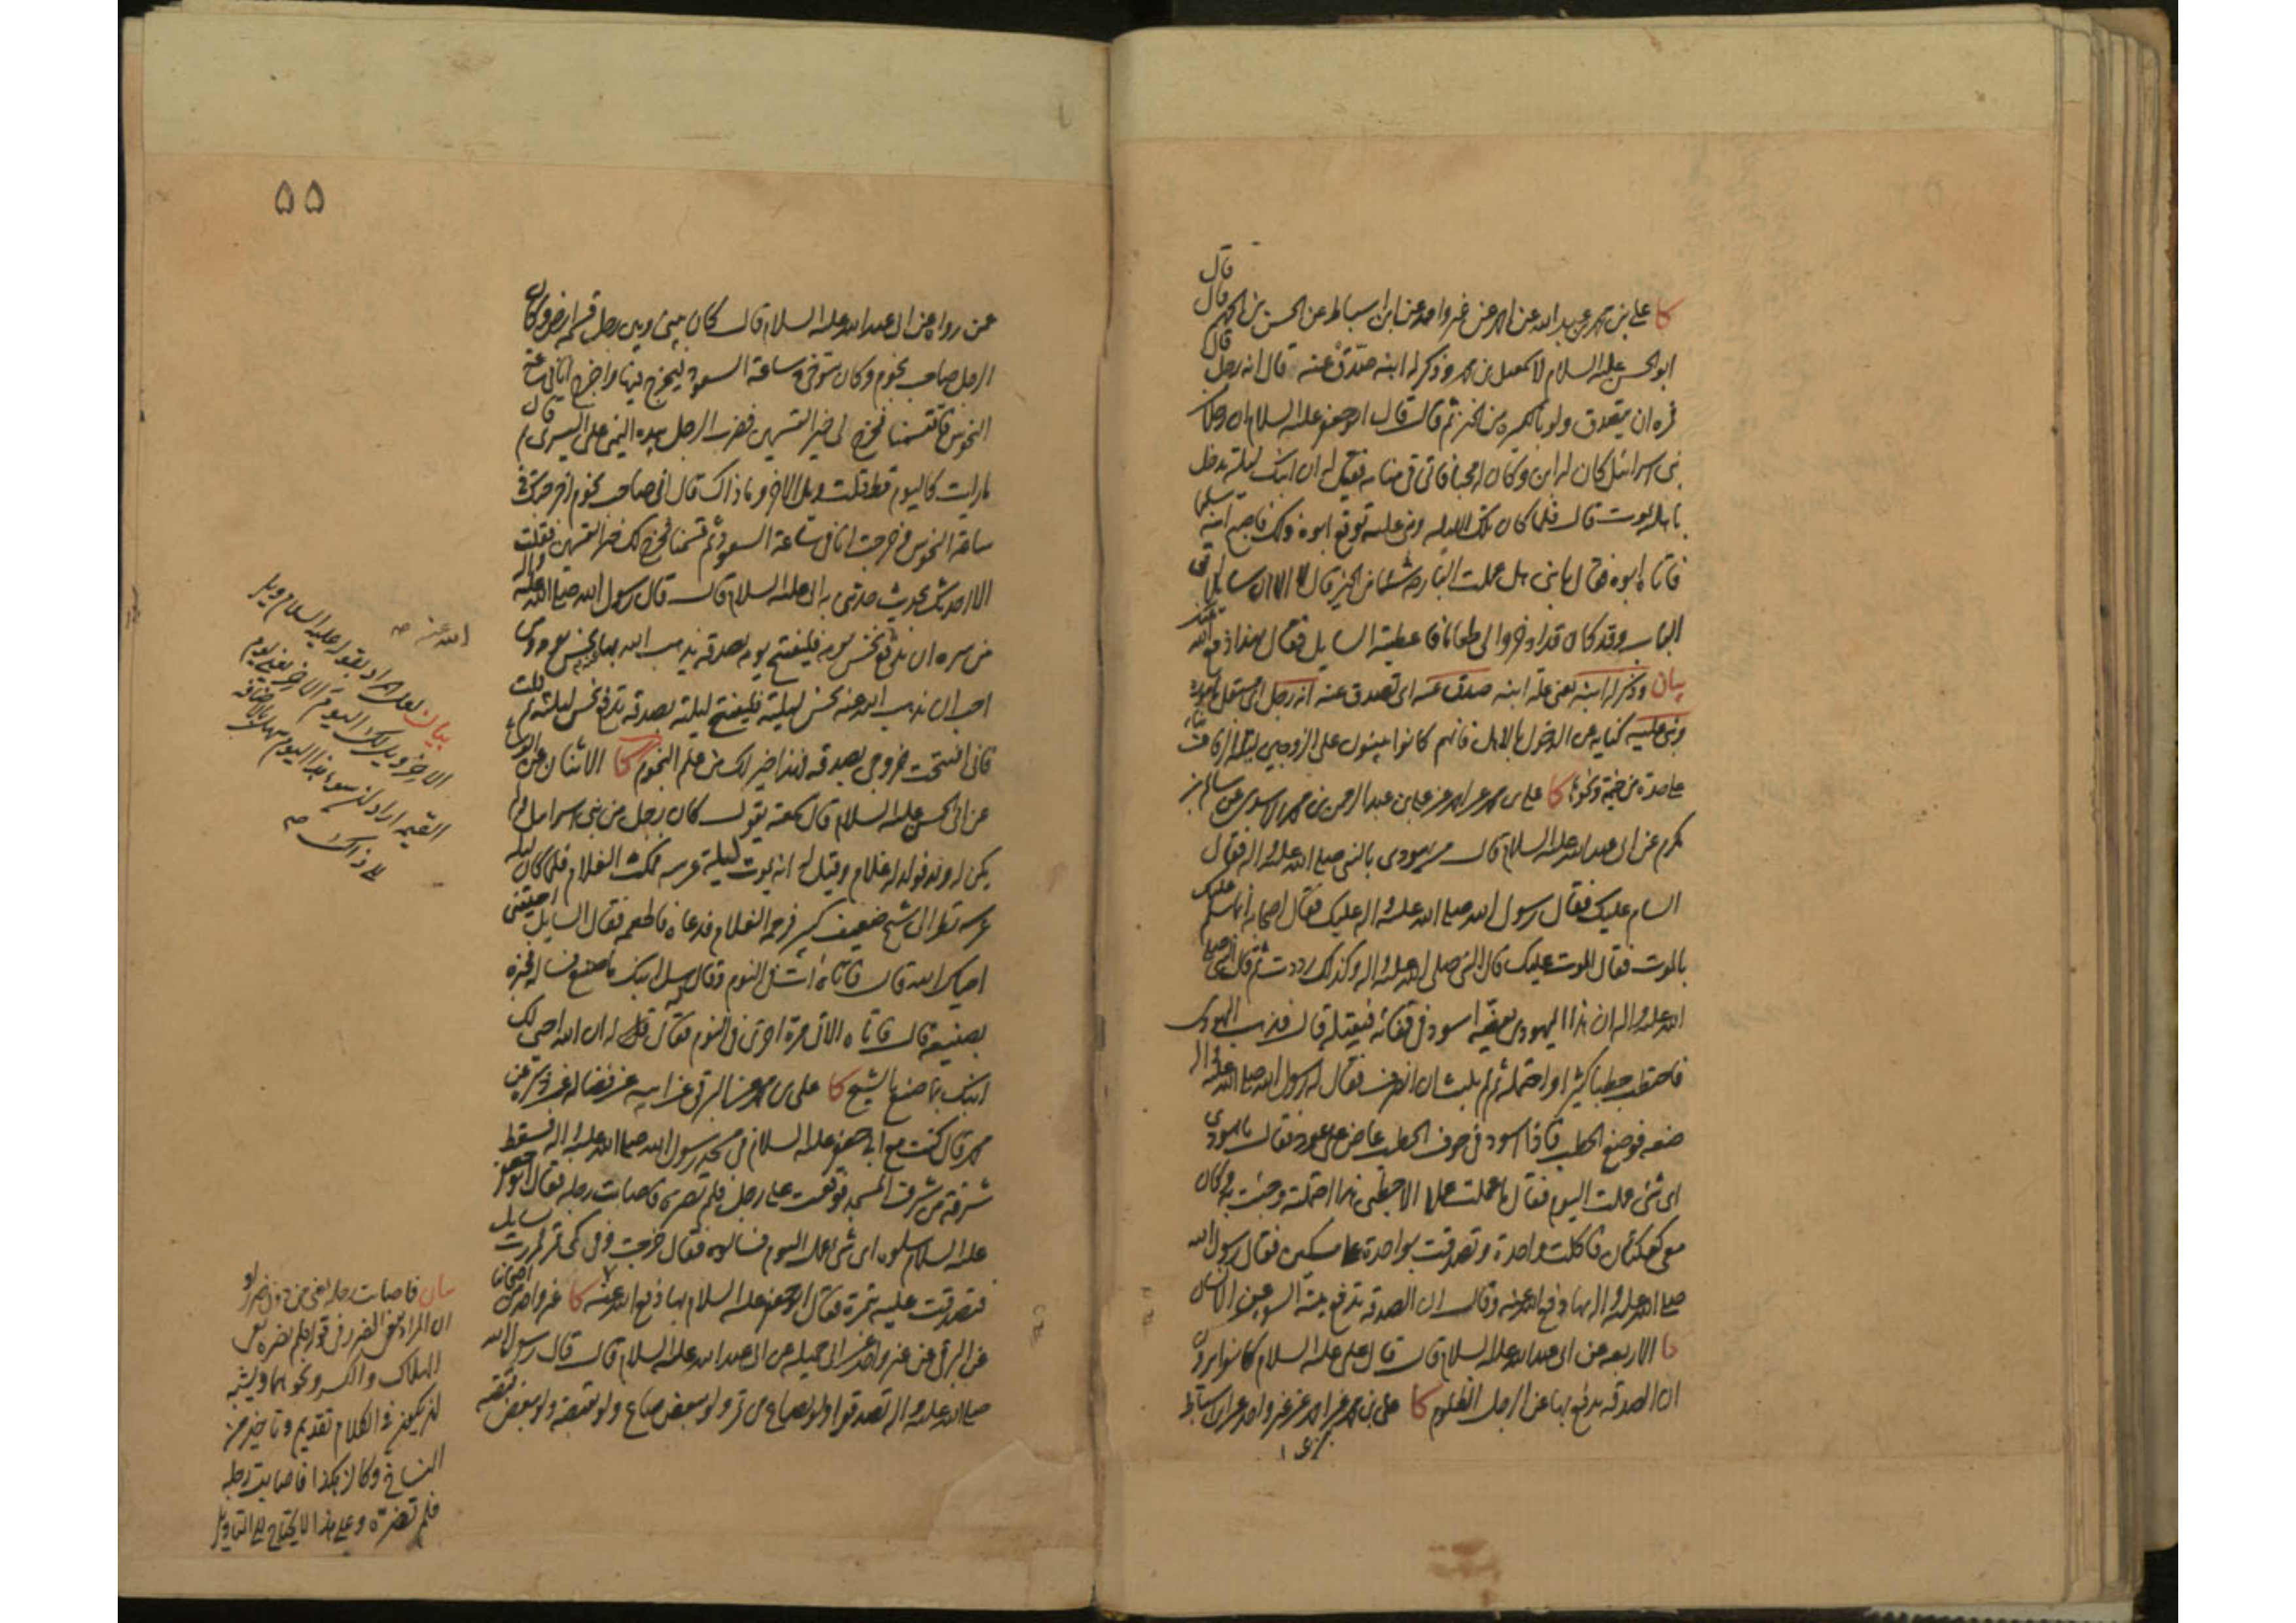 قال
كا علي بن محمد بن عبد الله عن احمد عن غير واحد عن ابن اسباط عن الحسن بن الجهم قال
ابو الحسن عليه السلام لاسمعيل بن محمد وذكر له ابنه صدّق عنه قال انه رجل قال
فمره ان يتصدق ولو بالكسرة من الخبز ثم قال قال ابو جعفر عليه السلام ان رجلا من
بني اسرائيل كان له ابن وكان له محبا فاتي في منامه فقيل له ان ابنك ليلة يدخل
باهله يموت قال فلما كان تلك الليلة وبنى عليه توقع ابوه ذلك فاصبح ابنه سليما
فاتاه ابوه فقال يا بني هل عملت البارحة شيئا من الخير قال لا الا ان سايلا اتى
الباب وقد كانوا ادخروا لي طعاما فاعطيته السايل فقال بهذا دفع الله عنك
بيان وذكر له ابنه يعني علة ابنه صدق عنه اي تصدق عنه انه رجل اي مستقل بامره
وبنى عليه كناية عن الدخول بالاهل فانهم كانوا يبنون على الزوجين ليلة الزفاف بناء
على حدة من خيمة ونحوها كا علي بن محمد عن احمد عن علي عن عبد الرحمن بن محمد الاسدي عن سالم بن
مكرم عن ابي عبد الله عليه السلام قال مر يهودي بالنبي صلى الله عليه واله فقال
السام عليك فقال رسول الله صلى الله عليه واله عليك فقال اصحابه انما سلم عليك
بالموت فقال الموت عليك قال النبي صلى الله عليه واله وكذلك رددت ثم قال النبي صلى
الله عليه واله ان هذا اليهودي يعضّه اسود في قفاه فيقتله قال فذهب اليهودي
فاحتطب حطبا كثيرا واحتمله ثم لم يلبث ان انصرف فقال له رسول الله صلى الله عليه واله
ضعه فوضع الحطب فاذا اسود في جوف الحطب عاض على عود فقال يا يهودي
اي شئ عملت اليوم فقال ما عملت عملا الا حطبي هذا احتملته وجئت به وكان
معي كعكتان فاكلت واحدة وتصدقت بواحدة على مسكين فقال رسول الله
صلى الله عليه واله بها دفع الله عنه وقال ان الصدقة تدفع ميتة السوء عن الانسان
كا الاربعة عن ابي عبد الله عليه السلام قال قال علي عليه السلام كانوا يرون
ان الصدقة يدفع بها عن الرجل الظلوم كا علي بن محمد عن احمد عن غير واحد عن ابن اسباط
۵۵
عمن رواه عن ابي عبد الله عليه السلام قال كان بيني وبين رجل قسمة ارض وكان
الرجل صاحب نجوم وكان يتوخى ساعة السعود ليخرج فيها واخرج انا في ساعة
النحوس فاقتسمنا فخرج لي خير القسمين فضرب الرجل بيده اليمنى على اليسرى ثم قال
ما رايت كاليوم قط قلت ويل الاخر وما ذاك قال اني صاحب نجوم اخرجتك في
ساعة النحوس وخرجت انا في ساعة السعود ثم قسمنا فخرج لك خير القسمين فقلت
الا احدثك بحديث حدثني به ابي عليه السلام قال قال رسول الله صلى الله عليه واله
من سره ان يدفع نحس يومه فليفتتح يومه بصدقة يذهب الله بها عنه نحس يومه ومن
احب ان يذهب الله عنه نحس ليلته فليفتتح ليلته بصدقة تدفع نحس ليلته ثم قلت
فاني افتتحت خروجي بصدقة فهذا خير لك من علم النجوم كا الاثنان عن الوشا
عن ابي الحسن عليه السلام قال سمعته يقول كان رجل من بني اسرائيل ولم
يكن له ولد فولد له غلام وقيل له انه يموت ليلة عرسه فمكث الغلام فلما كان ليلة
عرسه نظر الى شيخ ضعيف كبير فرحمه الغلام فدعاه فاطعمه فقال السايل احييتني
احياك الله قال فاتاه آت في النوم فقال له سل ابنك ما صنع فساله فخبره
بصنيعه قال فاتاه الآتي مرة اخرى في النوم فقال له ان الله احيى لك
ابنك بما صنع بالشيخ كا علي بن محمد عن البرقي عن ابيه عن فضالة عمن ذكره عن
محمد قال كنت مع ابي جعفر عليه السلام في مسجد رسول الله صلى الله عليه واله فسقط
شرفة من شرف المسجد فوقعت على رجل فلم تضره واصابت رجله فقال ابو جعفر
عليه السلام سلوه اي شئ عمل اليوم فسالوه فقال خرجت وفي كمي تمر فمررت بسايل
فتصدقت عليه بتمرة فقال ابو جعفر عليه السلام بها دفع الله عنك كا غير واحد من اصحابنا
عن البرقي عن غير واحد عن ابي جميلة عن ابي عبد الله عليه السلام قال قال رسول الله
صلى الله عليه واله تصدقوا ولو بصاع من تمر ولو ببعض صاع ولو بقبضة ولو ببعض قبضة
الله عنه صح
بيان لعل المراد بقوله عليه السلام ويل
الاخر ويل لك اليوم الاخر يعني يوم
القيمة اراد ان سوء هذا اليوم سهل بالاضافة
الى ذاك صح
بيان فاصابت رجله يعني من دون ضرر او
ان المراد من الضرر في قوله فلم تضره
الهلاك والكسر ونحوهما ويشبه
ان يكون في الكلام تقديم وتاخير من
النساخ وكان هكذا فاصابت رجله
فلم تضرّه وعلى هذا لا يحتاج الى التاويل